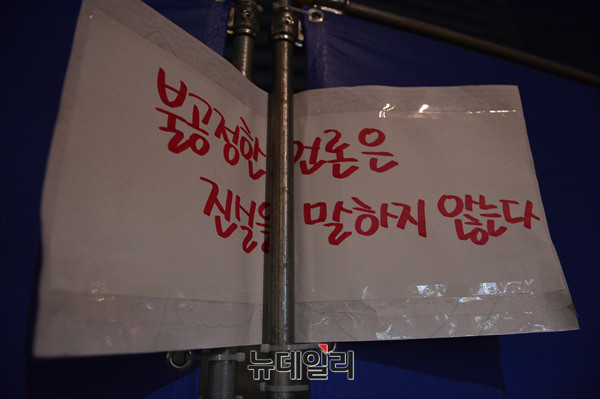 불공정한 언론은
진실을 말하지 않는다
뉴데일리